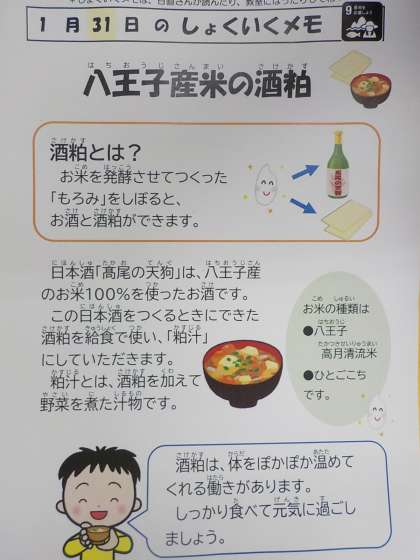 1月31日のしょくいくメモ
八王子産米の酒粕
はちおうじさんまい さけかす
酒粕とは?
さけかす
お米を発酵させてつくった
「もろみ」をしぼると、
お酒と酒粕ができます。
髙尾の天狗
日本酒「髙尾の天狗」は、八王子産
のお米100%を使ったお酒です。
この日本酒をつくるときにできた
酒粕を給食で使い、「粕汁」
にしていただきます。
粕汁とは、酒粕を加えて
野菜を煮た汁物です。
お米の種類は
●八王子
高月清流米
●ひとごこち
です。
酒粕は、体をぽかぽか温めて
くれる働きがあります。
しっかり食べて元気に過ごし
ましょう。